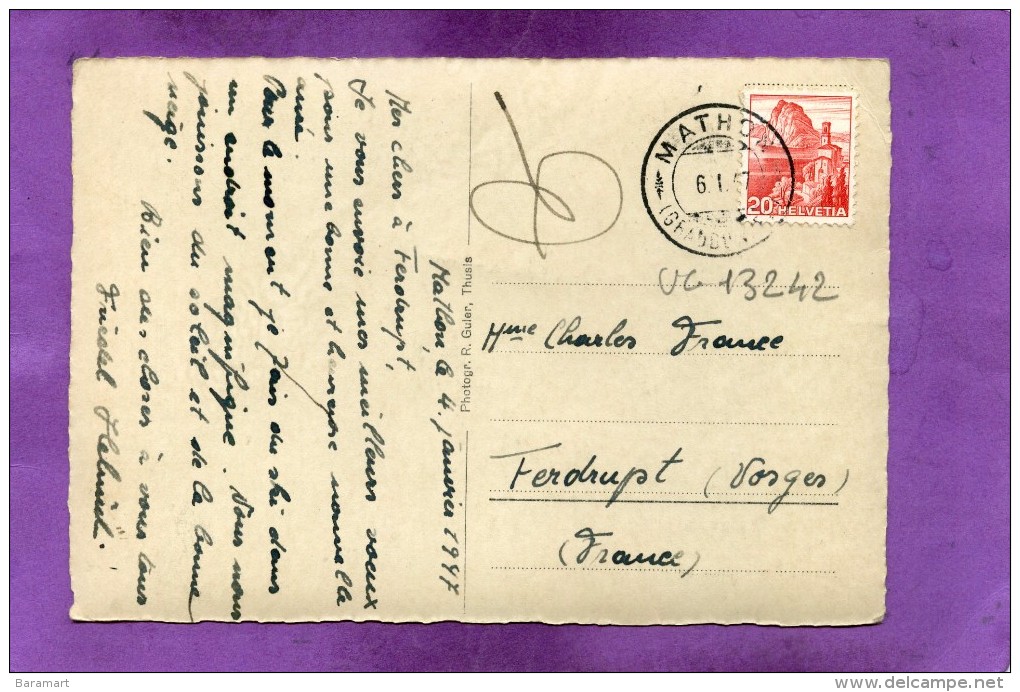 Mathon, le 4. janvier 1947
Mes chers à Ferdrupt,
Je vous envoie mes meilleurs voeux
pour une bonne et heureuse nouvelle
année.
Pour le moment je fais du ski dans
un endroit magnifique. Nous nous
jouissons du soleil et de la bonne
neige.
Rien des choses à vous tous
Friedel
Photogr. R. Guler, Thusis
MATHON
6. I. 4
(GRAUBÜ
20 HELVETIA
13242
Mme Charles France
Ferdrupt (Vosges)
(France)
Baramart
www.delcampe.net